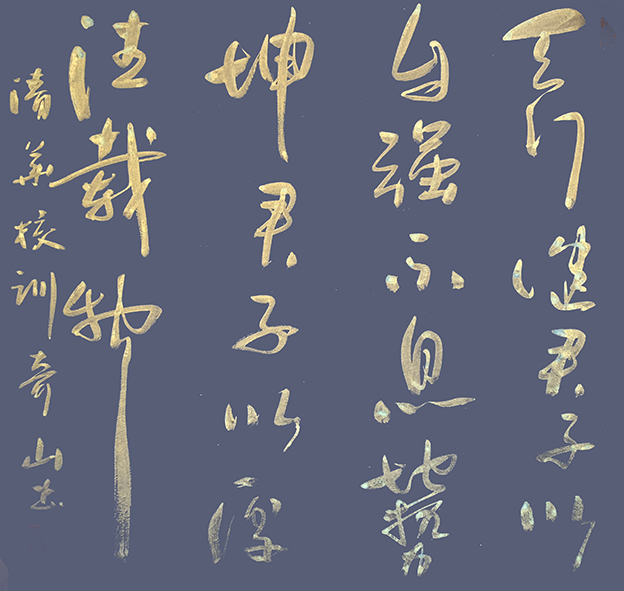 天行健君子以
自强不息地势
坤君子以厚
德载物
清華校训奇山